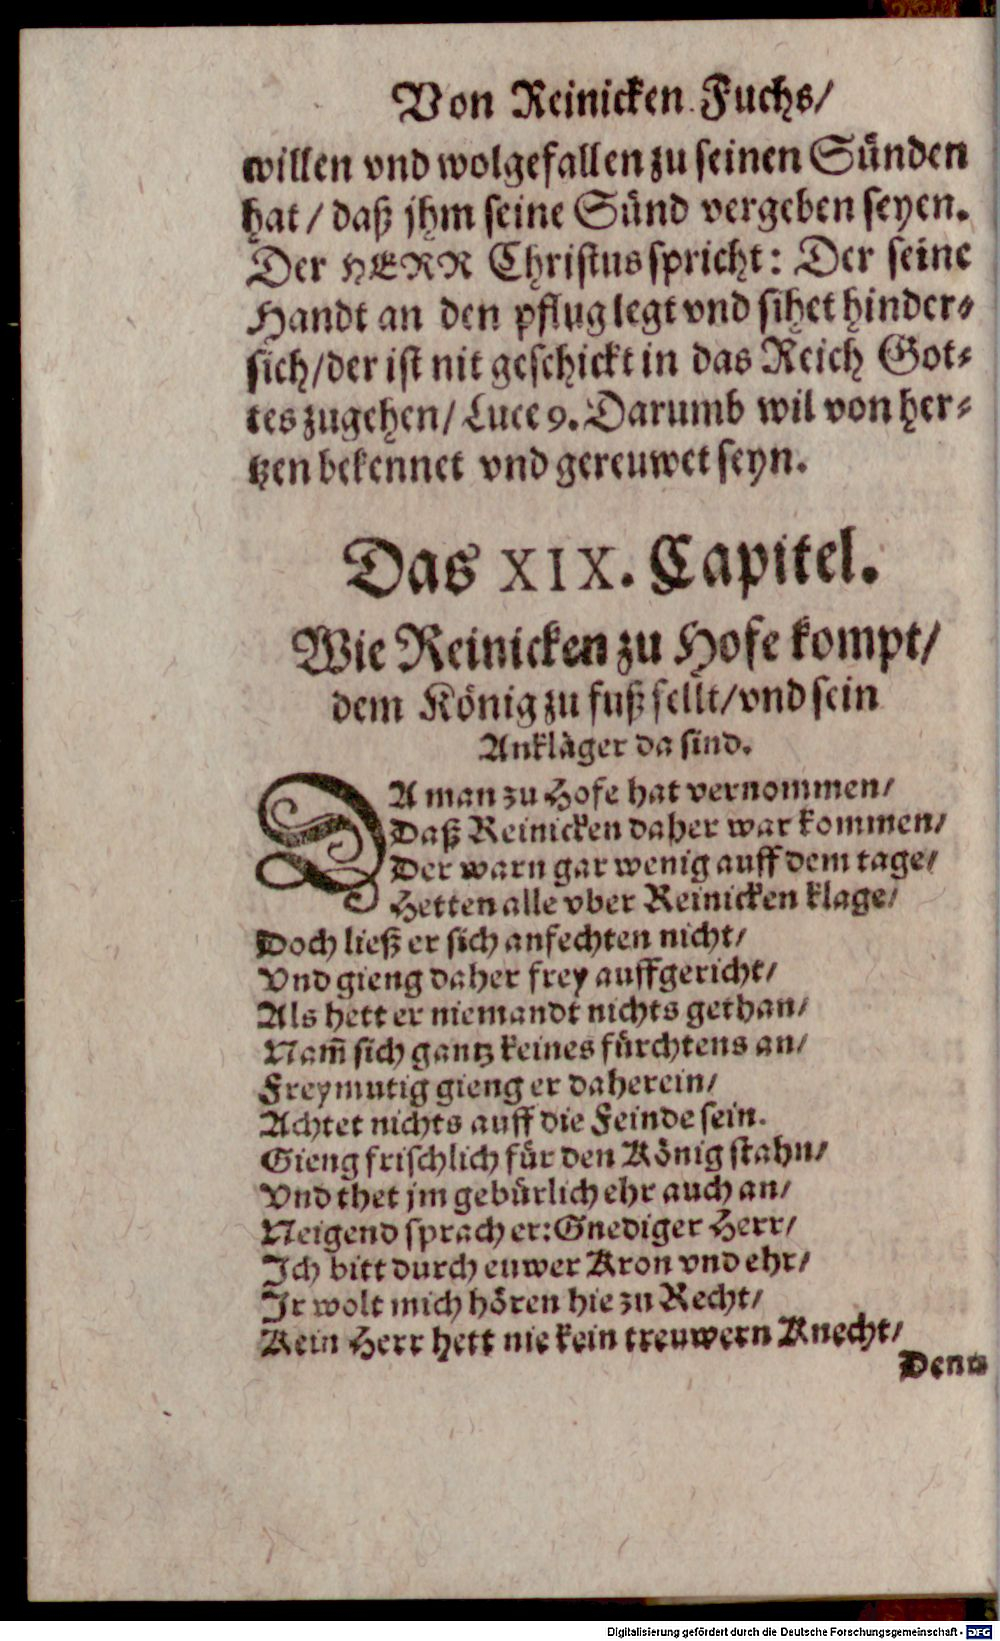 Von Reinicken Fuchs/
willen vnd wolgefallen zu seinen Sünden
hat / daß jhm seine Sünd vergeben seyen.
Der HERR Christus spricht: Der seine
Handt an den pflug legt vnd sihet hinder⸗
sich/der ist nit geschickt in das Reich Got⸗
tes zugehen/ Luce 9. Darumb wil von her⸗
tzen bekennet vnd gereuwet seyn.
Das XIX. Capitel.
Wie Reinicken zu Hofe kompt/
dem König zu fuß fellt/vnd sein
Ankläger da sind.
DA man zu Hofe hat vernommen/
Daß Reinicken daher war kommen/
Der warn gar wenig auff dem tage/
Hetten alle vber Reinicken klage/
Doch ließ er sich anfechten nicht/
Vnd gieng daher frey auffgericht/
Als hett er niemandt nichts gethan/
Nam̃ sich gantz keines fürchtens an/
Freymutig gieng er daherein/
Achtet nichts auff die Feinde sein.
Gieng frischlich für den König stahn/
Vnd thet jm gebürlich ehr auch an/
Neigend sprach er: Gnediger Herr/
Ich bitt durch euwer Kron vnd ehr/
Ir wolt mich hören hie zu Recht/
Kein Herr hett nie kein treuwern Knecht/
Denn
Digitalisierung gefördert durch die Deutsche Forschungsgemeinschaft - DFG